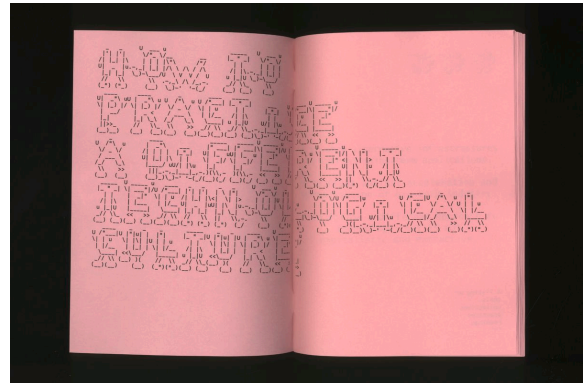 HOW TO
PRACTICE
A DIFFERENT
TECHNOLOGICAL
CULTURE